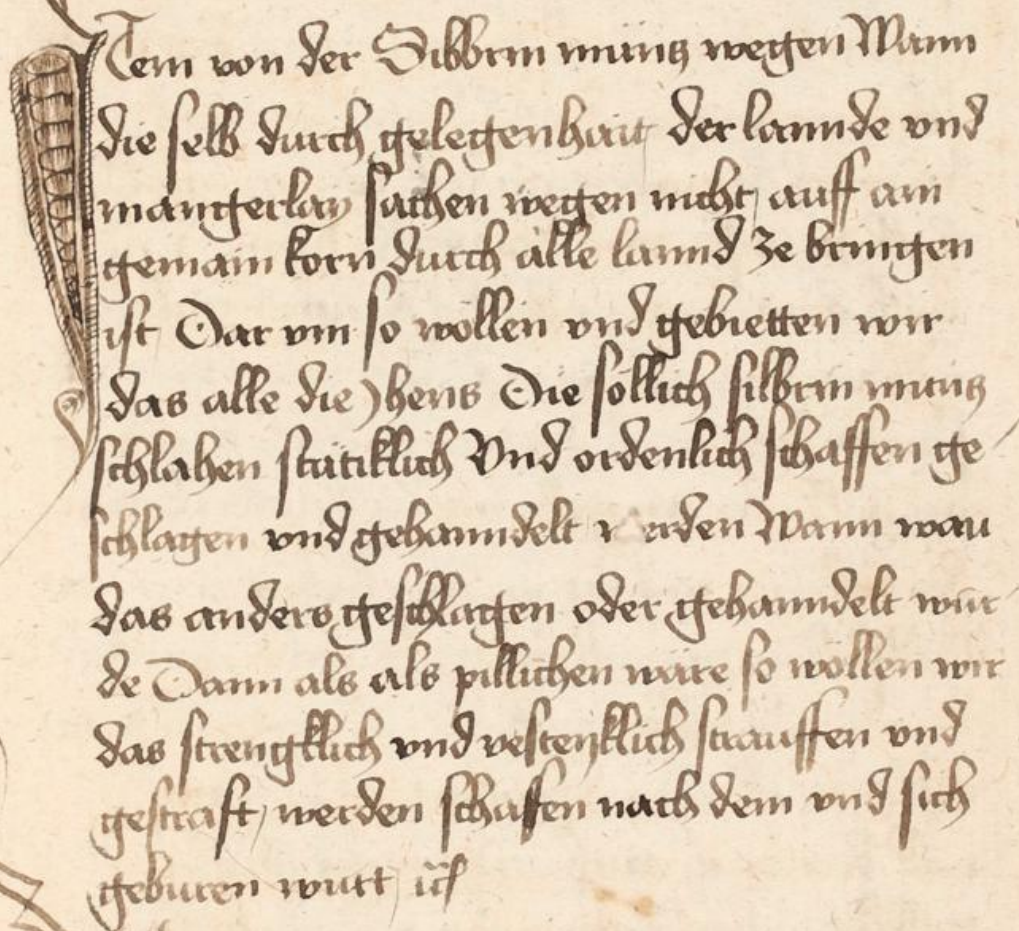 Item von der Silbrin müns wegen Wann
die selb durch gelegenhait der lannde vnd
mangerlay sachen wegen nicht auff ain
gemain korn durch alle lannd ze bringen
ist Dar vm so wöllen vnd gebietten wir
das alle die Jhens Die söllich silbrin müns
schlahen stätiklich Vnd ordenlich schaffen ge
schlagen vnd gehanndelt werden Wann wau
das anders geschlagen oder gehanndelt wur
de Dann als als pillichen wäre so wöllen wir
das strengklich vnd vestenklich strauffen vnd
gestraft werden schaffen nach dem vnd sich
geburen wurt